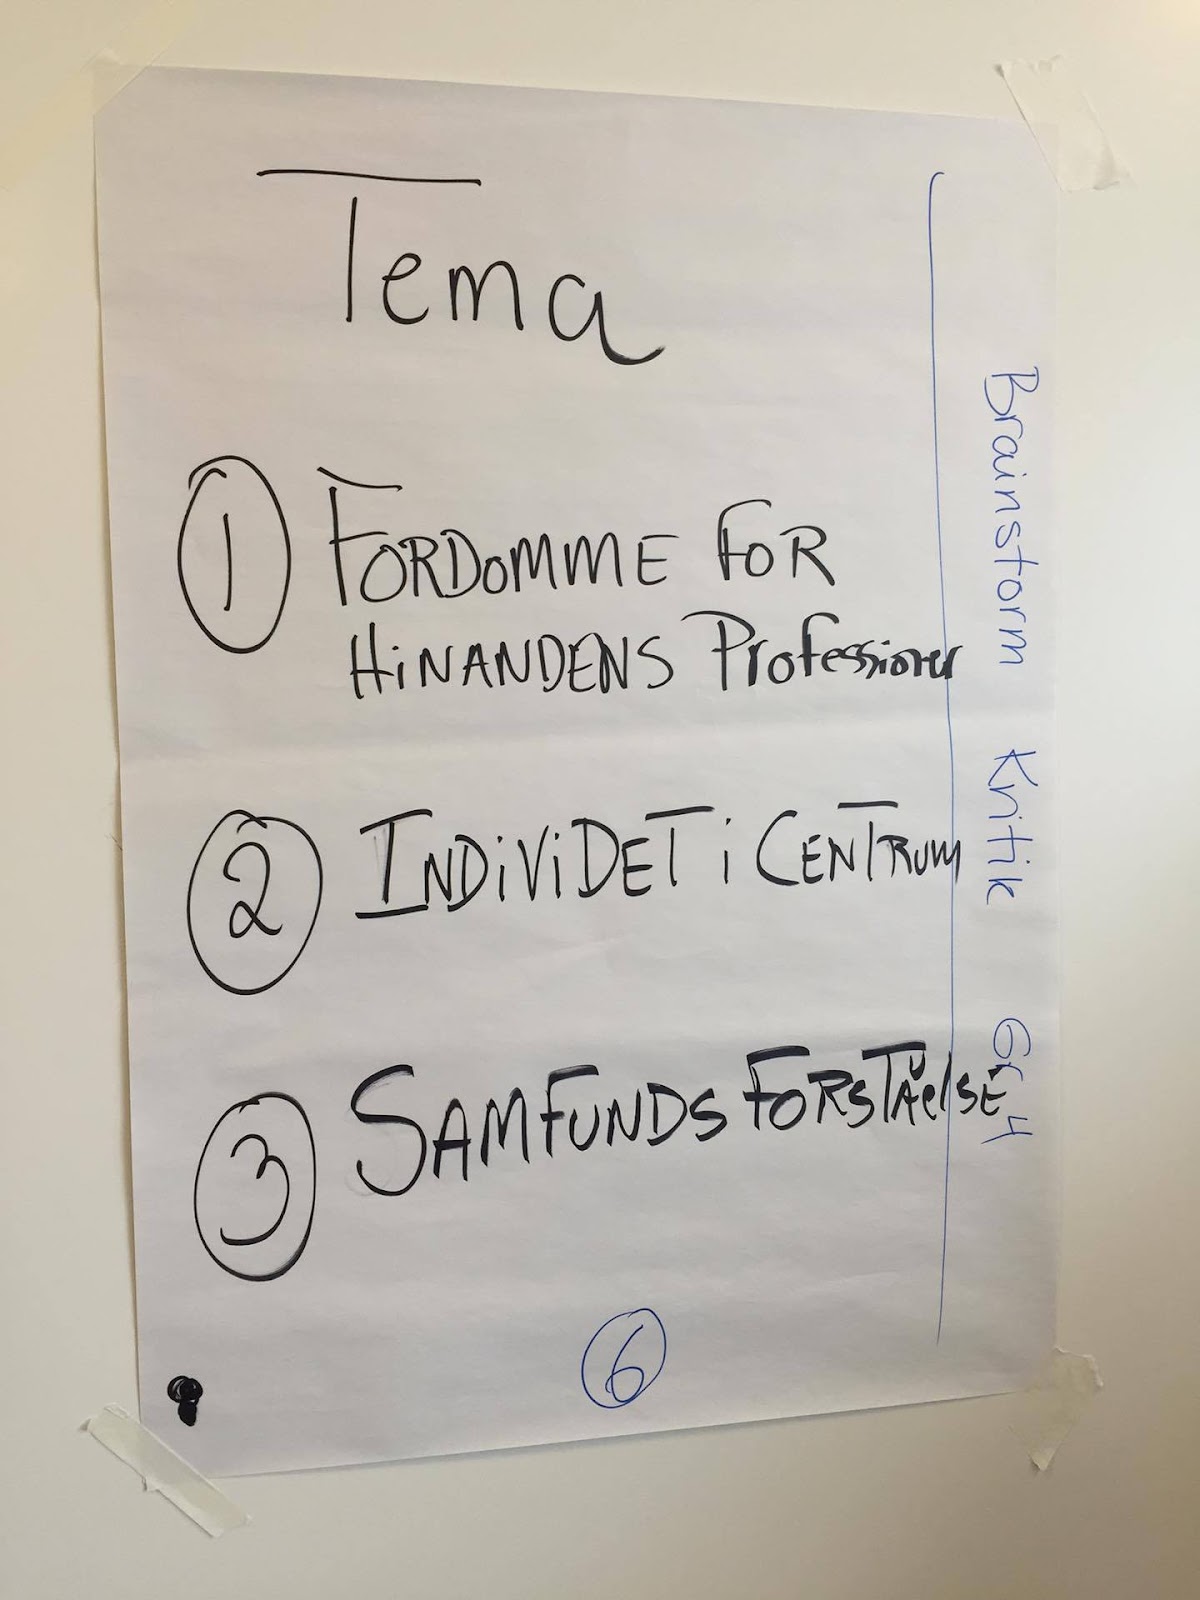 Tema
1 FORDOMME FOR
HiNANDENS Professioner
2 INDiViDET i CENTRUM
3 SAMFUNDSFORSTÅelSE
6
Brainstorm Kritik Gr 4